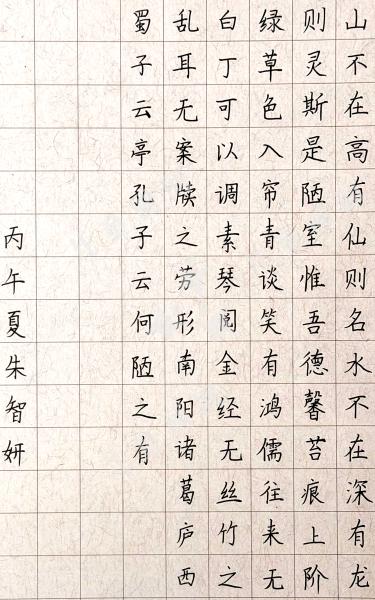 山不在高有仙则名水不在深有龙
则灵斯是陋室惟吾德馨苔痕上阶
绿草色入帘青谈笑有鸿儒往来无
白丁可以调素琴阅金经无丝竹之
乱耳无案牍之劳形南阳诸葛庐西
蜀子云亭孔子云何陋之有
丙午夏朱智妍